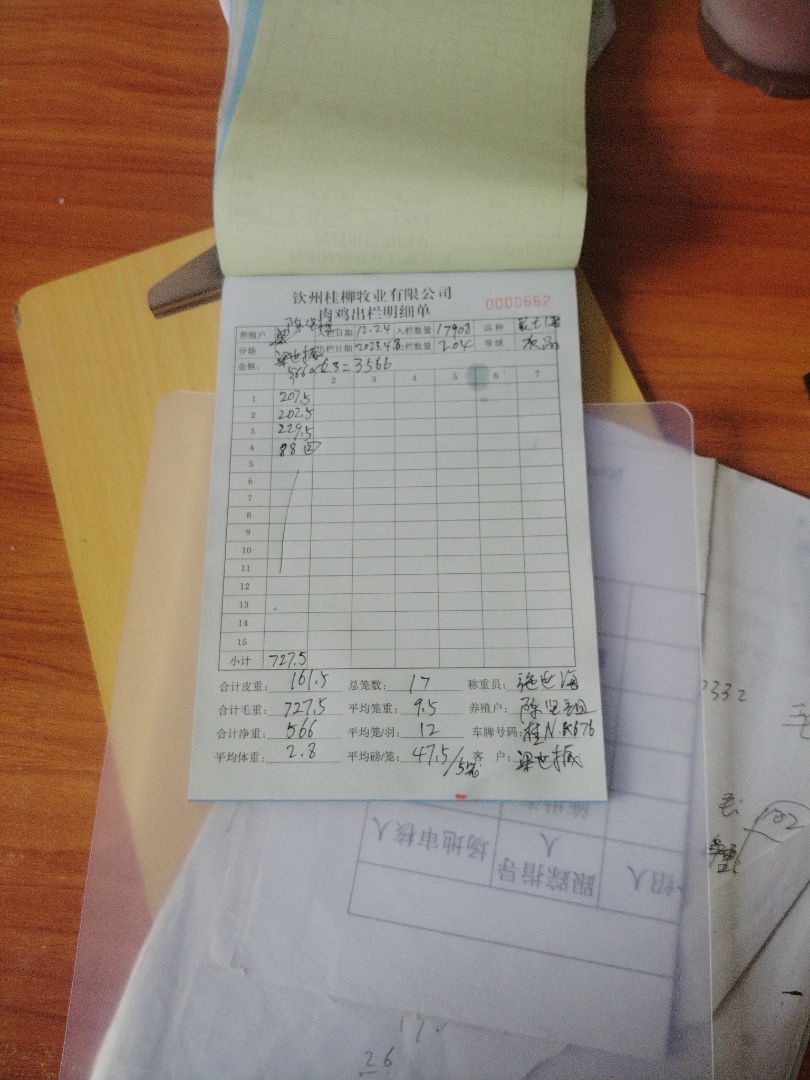 钦州桂柳牧业有限公司
肉鸡出栏明细单 0000662
养殖户 入栏日期 12.24 入栏数量 17908 品种
分场 梁世振 出栏日期 2023.4.8 出栏数量 204 等级 次品
金额: 566×6.3=3566
1 2 3 4 5 6 7
1 207.5
2 202.5
3 229.5
4 88
5
6
7
8
9
10
11
12
13
14
15
小计 727.5
合计皮重: 161.5 总笼数: 17 称重员: 施世海
合计毛重: 727.5 平均笼重: 9.5 养殖户: 陈
合计净重: 566 平均笼/羽: 12 车牌号码: 桂N·K676
平均体重: 2.8 平均磅/笼: 47.5/5笼 客户: 梁世振
2332
场地审核人
跟踪指导人
组人
26